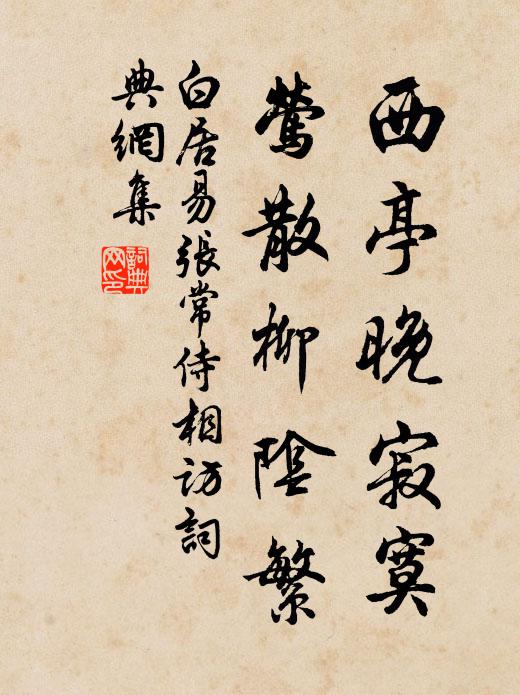 西亭晚寂寞
莺散柳陰繁
白居易張常侍相访詞
典網集
詞典网印